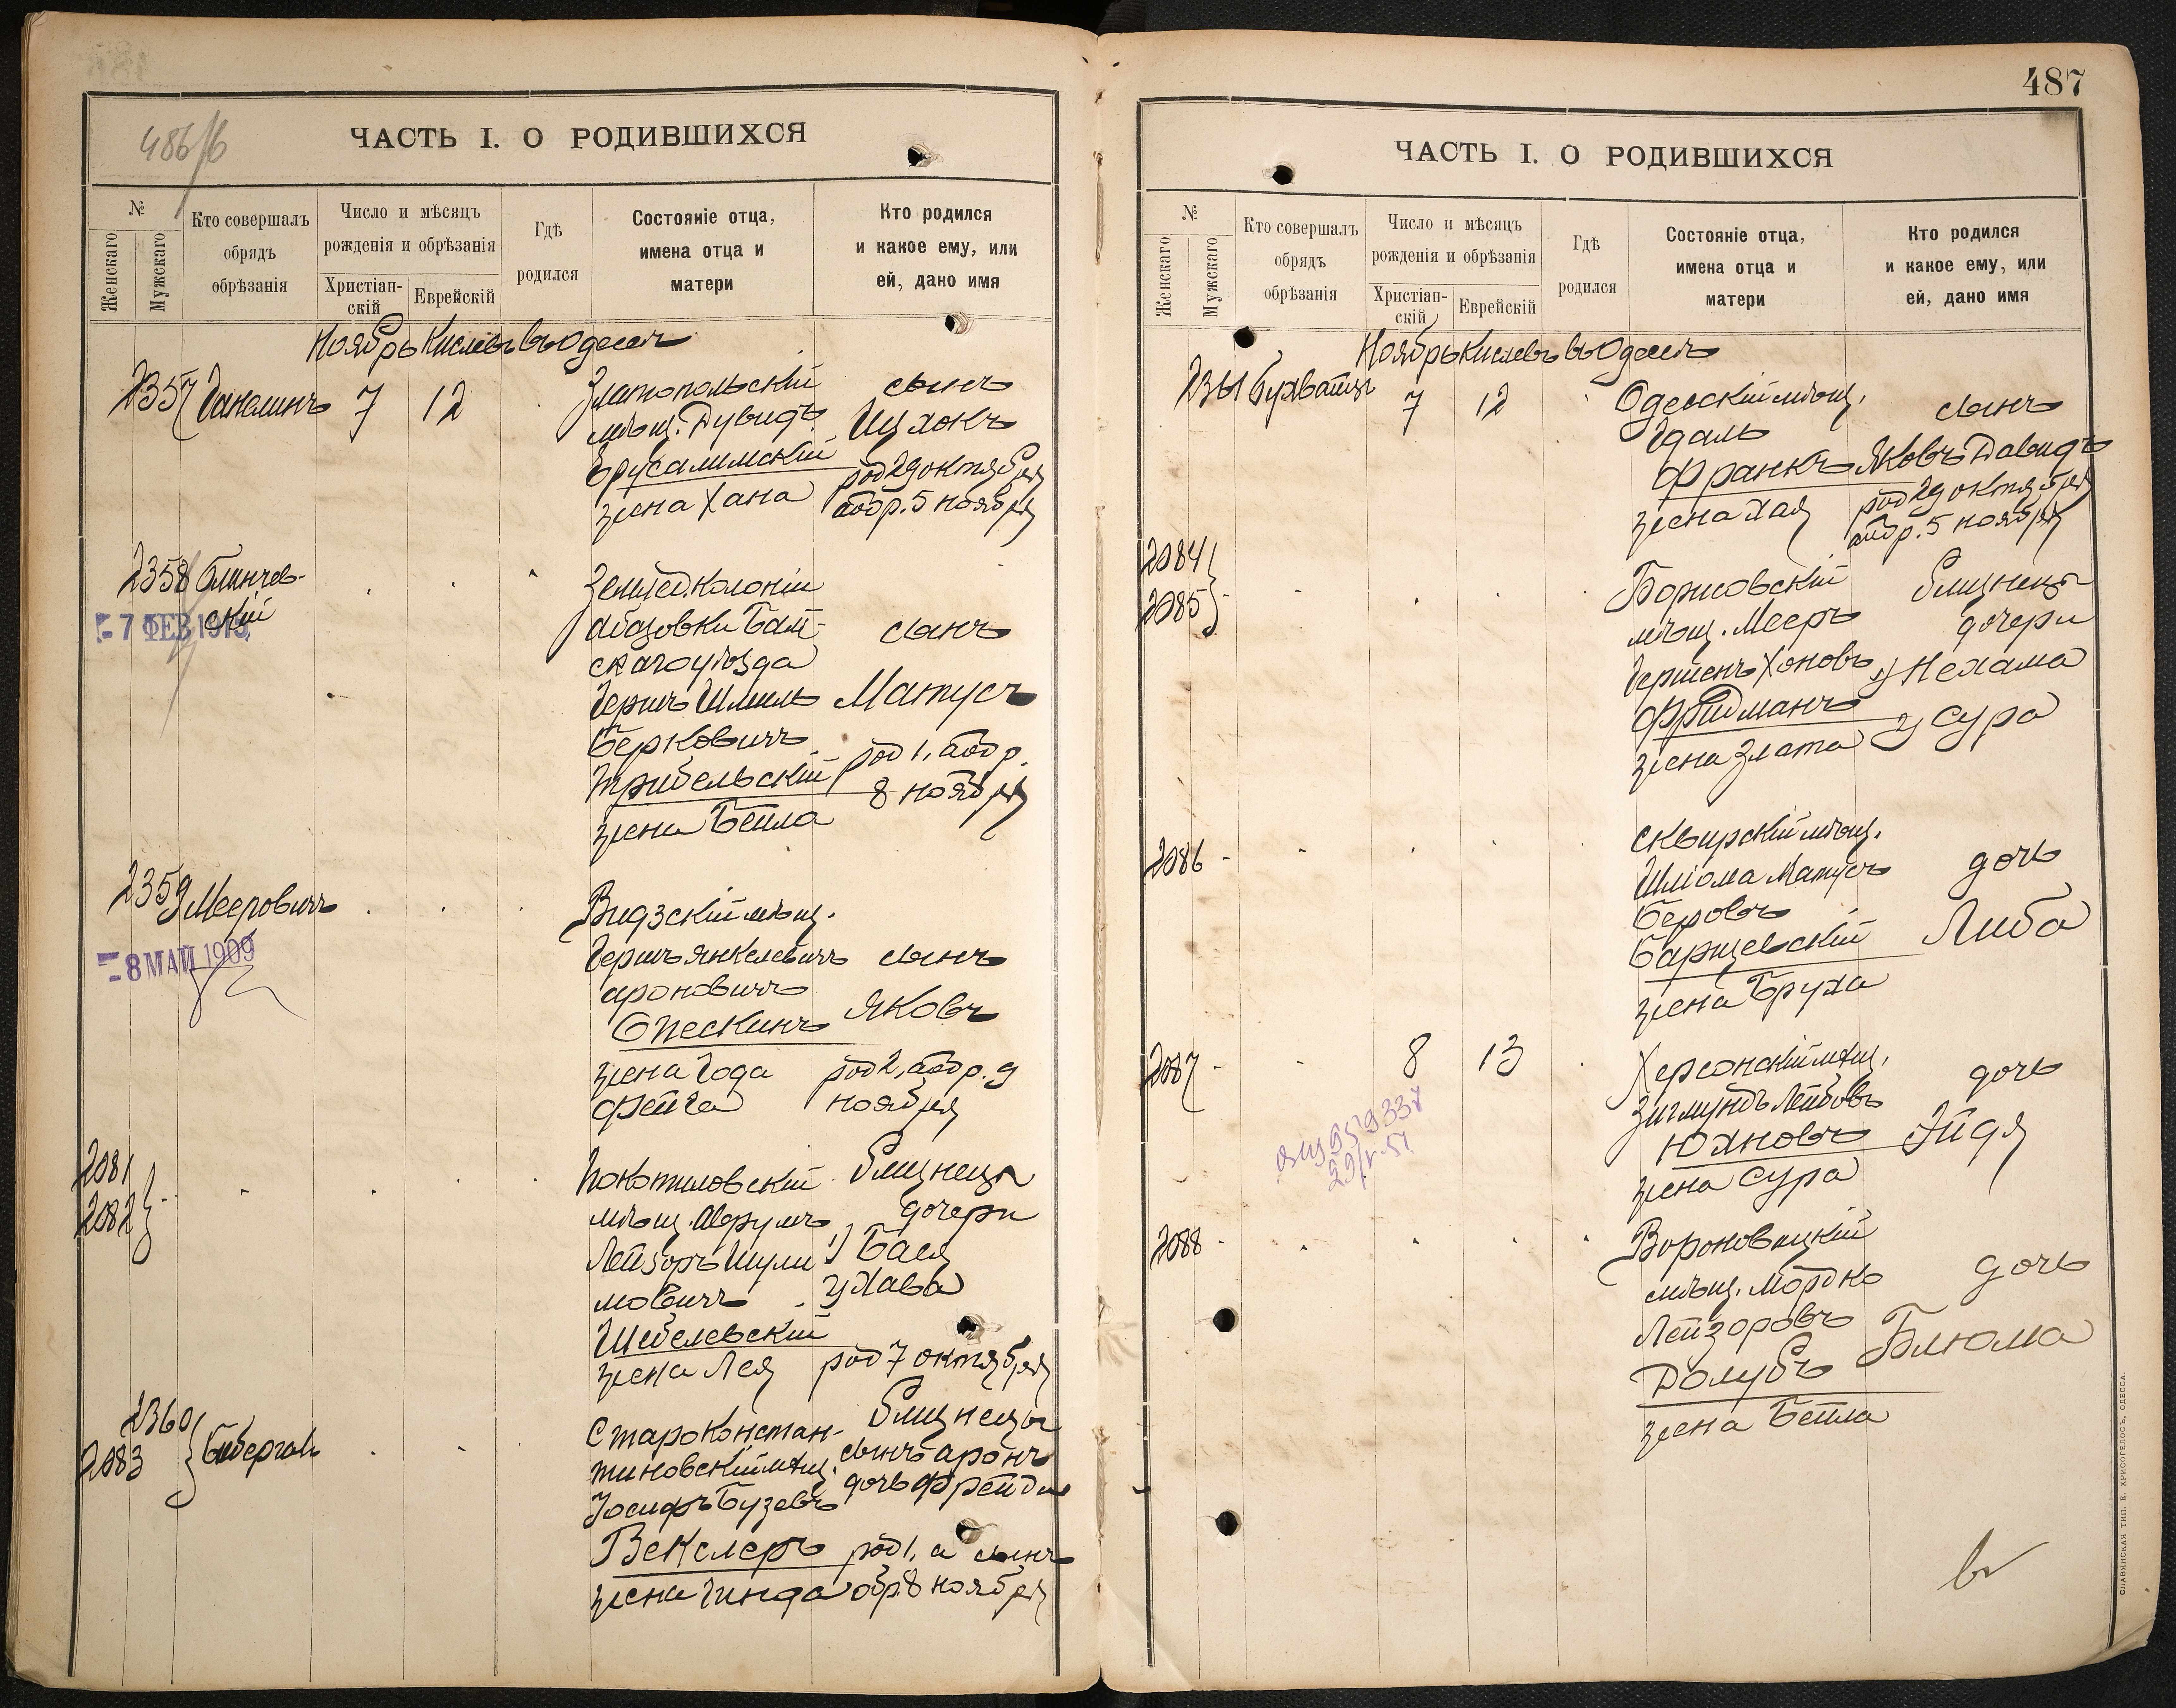 486/б
ЧАСТЬ I. О РОДИВШИХСЯ
№
Женскаго
Мужскаго
Кто совершалъ
обрядъ
обрѣзанія
Число и мѣсяцъ
рожденія и обрѣзанія
Христіан-
скій
Еврейскій
Гдѣ
родился
Состояніе отца,
имена отца и
матери
Кто родился
и какое ему, или
ей, дано имя
Ноябрь Кислевъ въ Одессѣ
2357
7
12
Златопольскій
мѣщ. Дувидъ
Ерусалимскій
жена Хана
сынъ
Ицхокъ
род 29 октября
обр. 5 ноября
2358
7 ФЕВ 1913
колоніи
уѣзда
Гершъ Шмиль
Берковичъ
жена Бейла
сынъ
Матусъ
род 1, обр.
8 ноября
2359 Мееровичъ
8 МАЙ 1909
Видзскій мѣщ.
Гершъ Янкелевичъ
Ароновичъ
Опескинъ
жена Года
Фейга
сынъ
Яковъ
род 2, обр. 9
ноября
2081
2082
Покотиловскій
мѣщ. Аврумъ
Лейзоръ Шули
мовичъ
Шебелевскій
жена Лея
Близнецы
дочери
1) Бася
2) Хава
род 7 октября
2360
2083
Староконстан-
тиновскій мѣщ.
Іосифъ Бузевъ
Векслеръ
жена Гинда
Близнецы
сынъ Аронъ
дочь Фрейда
род 1, а сынъ
обр. 8 ноября
487
ЧАСТЬ I. О РОДИВШИХСЯ
№
Женскаго
Мужскаго
Кто совершалъ
обрядъ
обрѣзанія
Число и мѣсяцъ
рожденія и обрѣзанія
Христіан-
скій
Еврейскій
Гдѣ
родился
Состояніе отца,
имена отца и
матери
Кто родился
и какое ему, или
ей, дано имя
Ноябрь Кислевъ въ Одессѣ
2361
7
12
Одесскій мѣщ.
Идаль
Франкъ
жена Хая
сынъ
Яковъ Давидъ
род 29 октября
обр. 5 ноября
2084
2085
Борисовскій
мѣщ. Мееръ
Гершенъ Хоновъ
Фридманъ
жена Злата
Близнецы
дочери
1) Нехама
2) Сура
2086
Сквирскій мѣщ.
Шліома Матусъ
Беровъ
Барщевскій
жена Бруха
дочь
Либа
2087
8
13
Херсонскій мѣщ.
Зигмундъ Лейбовъ
Юхновъ
жена Сура
дочь
Эйдя
2088
Вороновицкій
мѣщ. Мордко
Лейзоровъ
Голубъ
жена Бейла
дочь
Блюма
СЛАВЯНСКАЯ ТИП. Е. ХРИСОГЕЛОСЪ, ОДЕССА.